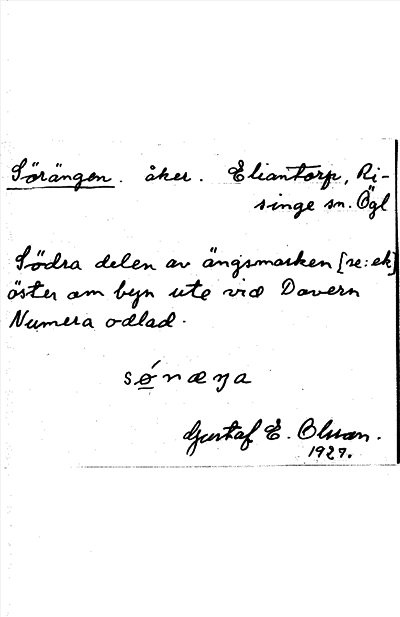 Sörängen. åker. Eliantorp, Ri-
singe sn. Ögl
Södra delen av ängsmarken [se: ek]
öster om byn ute vid Dovern
Numera odlad.
Gustaf E. Olsson.
1927.